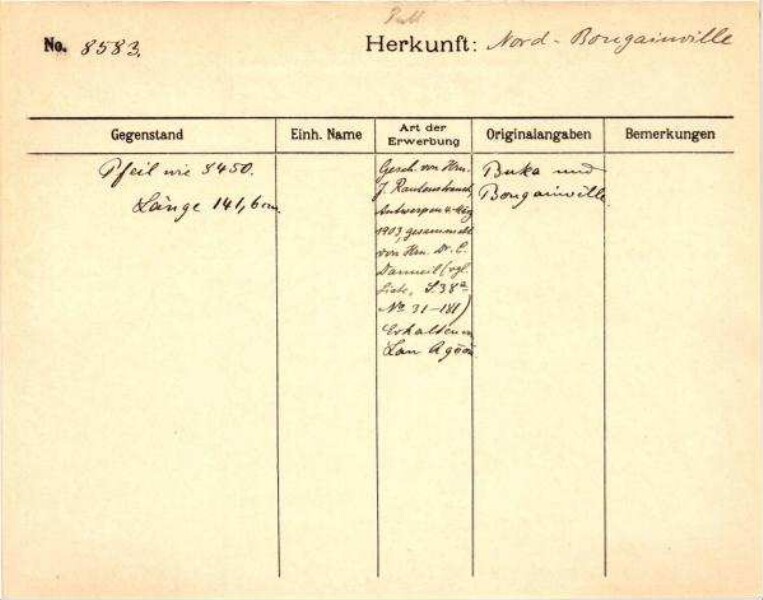 No. 8583.
Herkunft: Nord-Bougainville
Gegenstand
Einh. Name
Art der Erwerbung
Originalangaben
Bemerkungen
Pfeil wie 8450.
Länge 141,6 cm.
Gesch. von Hrn.
J. Rautenstrauch,
Antwerpen
1903, gesammelt
von Hrn. Dr. C.
Danneil (vgl.
Liste, S. 38a
No 31-181)
Erhalten
Buka und
Bougainville.